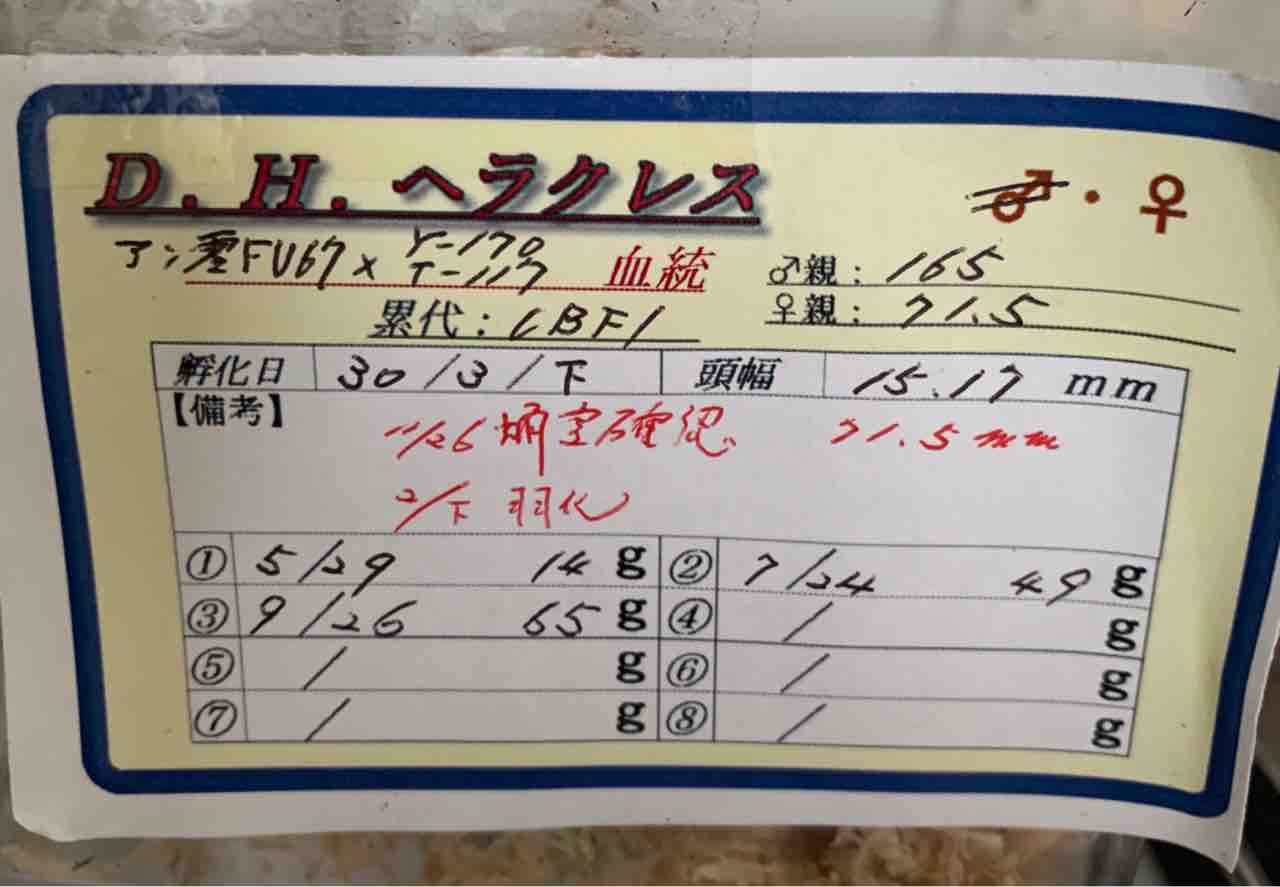 D.H.ヘラクレス ♂・♀
零FU67× Y-170 血統 ♂親:165
T-117
累代:CBF1 ♀親:71.5
孵化日 30/3/下 頭幅 15.17 mm
【備考】
11/26 蛹室確認 71.5mm
2/下 羽化
① 5/29 14 g ② 7/24 49 g
③ 9/26 65 g ④ / g
⑤ / g ⑥ / g
⑦ / g ⑧ / g